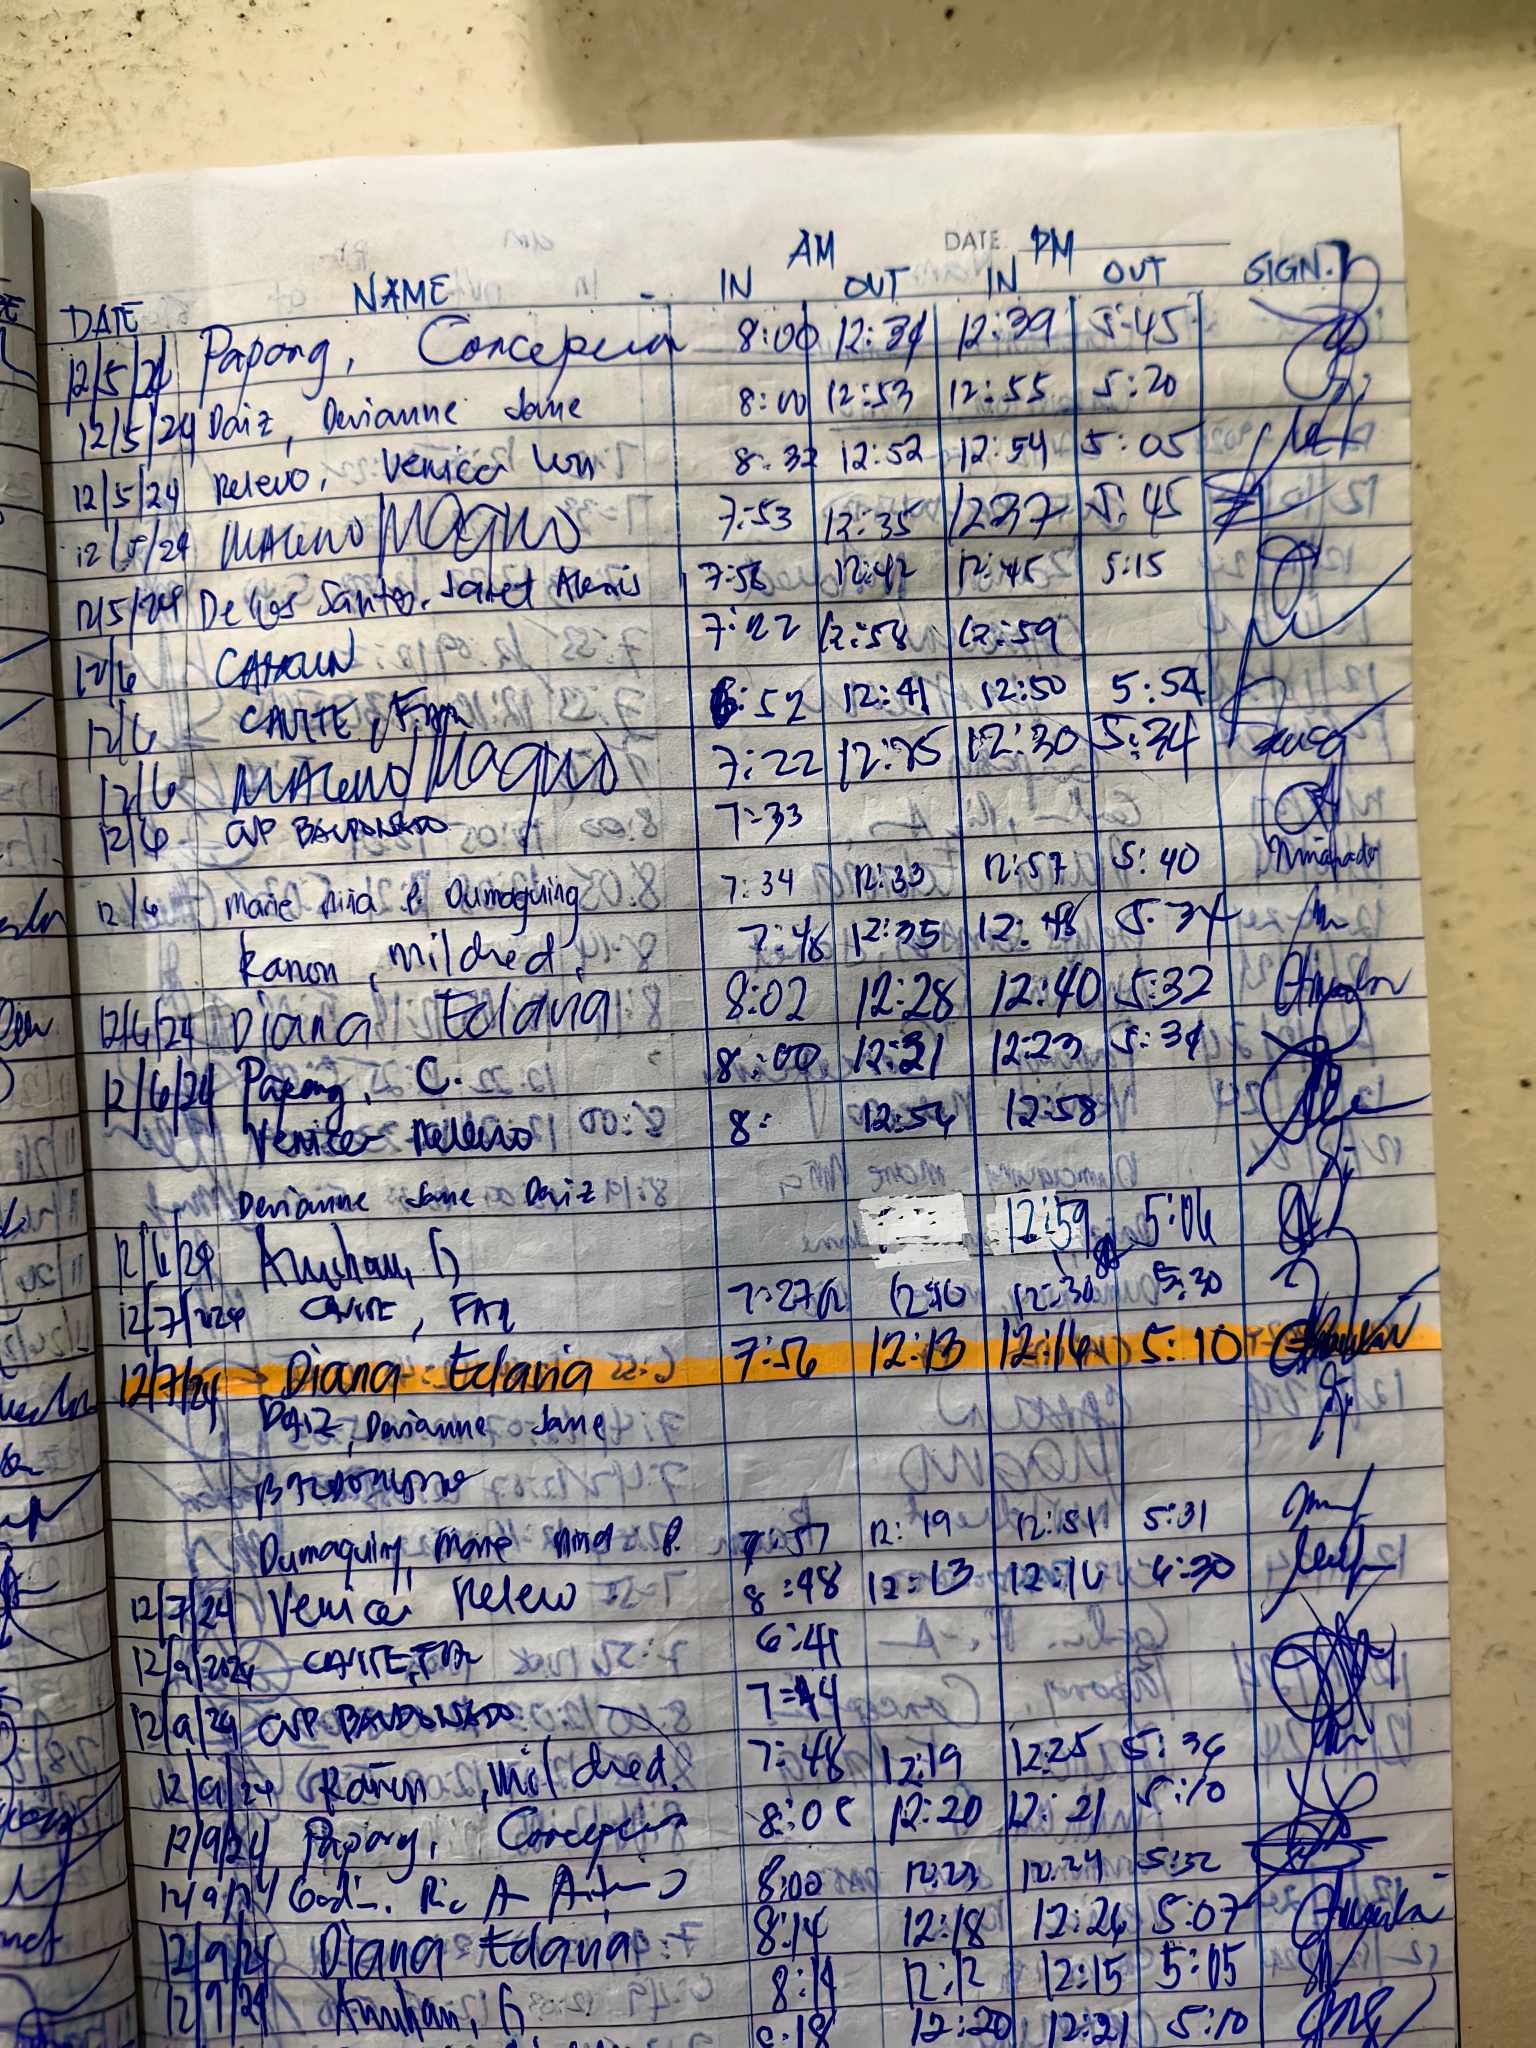 AM DATE PM
DATE NAME IN OUT IN OUT SIGN.
12/5/24 Papong, Concepcion 8:00 12:34 12:39 5:45
12/5/24 Daiz, Derianne Jane 8:00 12:53 12:55 5:20
12/5/24 Relevo, Venice 8:32 12:52 12:54 5:05
12/5/24 MALENO/MAGNO 7:53 12:35 1237 5:45
12/5/24 Delos Santos, Janet Alexis 7:56 12:42 12:45 5:15
12/6 CAHOLIN 7:22 12:58 12:59
12/6 CAVITE, 6:52 12:41 12:50 5:54
12/6 MALENO/MAGNO 7:22 12:25 12:30 5:34
12/6 CVP BALDONADO 7:33
12/6 Marie Nina P. Dumaquing 7:34 12:33 12:57 5:40
Ranon, Mildred. 7:48 12:35 12:48 5:34
12/6/24 Diana Eclavia 8:02 12:28 12:40 5:32
12/6/24 Papong, C. 8:00 12:21 12:23 5:34
Venice Relevo 8: 12:54 12:58
Derianne Jane Daiz
12/6/24 12:59 5:06
12/7/2024 CAVITE, 7:27 12:10 12:30 5:30
12/7/24 Diana Eclavia 7:56 12:13 12:16 5:10
DAIZ, Derianne Jane
Dumaquing, Marie Nina P. 7:57 12:19 12:51 5:31
12/7/24 Venice Relevo 8:48 12:13 12:16 4:30
12/9/2024 CAVITE, 6:41
12/9/24 CVP BALDONADO 7:44
12/9/24 Rañon, Mildred. 7:48 12:19 12:25 5:36
12/9/24 Papong, Concepcion 8:05 12:20 12:21 5:10
12/9/24 Godin, Ric A 8:00 12:23 12:24 5:32
12/9/24 Diana Eclavia 8:14 12:18 12:26 5:07
12/9/24 8:14 12:12 12:15 5:05
8:18 12:20 12:21 5:10